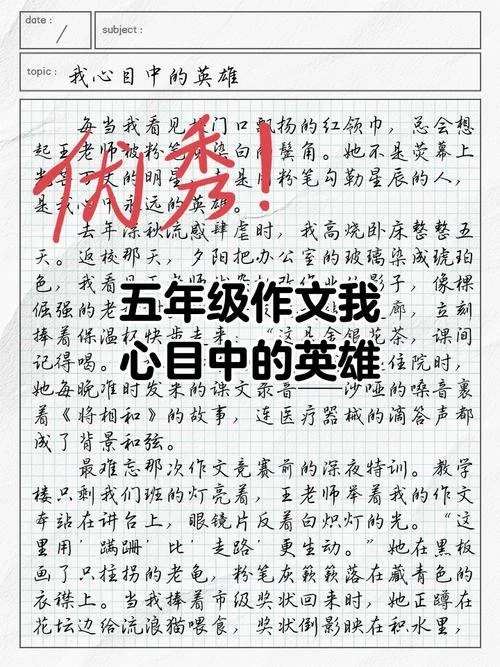 date :
subject :
topic : 我心目中的英雄
每当我看见校门口飘扬的红领巾，总会想
起王老师被粉笔染白的鬓角。她不是荧幕上
的明星，是用粉笔勾勒星辰的人，
是我心中永远的英雄。
优秀！
去年深秋流感肆虐时，我高烧卧床整整五
天。返校那天，夕阳把办公室的玻璃染成琥珀
色，我看见影子，像棵
倔强的老廊，立刻
五年级作文我
心目中的英雄
捧着保温杯快步走来："这是金银花茶，课间
记得喝。住院时，
她每晚准时发来的课文录音——沙哑的嗓音裹
着《将相和》的故事，连医疗器械的滴答声都
成了背景和弦。
最难忘那次作文竞赛前的深夜特训。教学
楼只剩我们班的灯亮着，王老师举着我的作文
本站在讲台上，眼镜片反着白炽灯的光。"这
里用'蹒跚'比'走路'更生动。"她在黑板
画了只拄拐的老龟，粉笔灰簌簌落在藏青色的
衣襟上。当我捧着市级奖状回来时，她正蹲在
花坛边给流浪猫喂食，奖状倒影映在积水里，